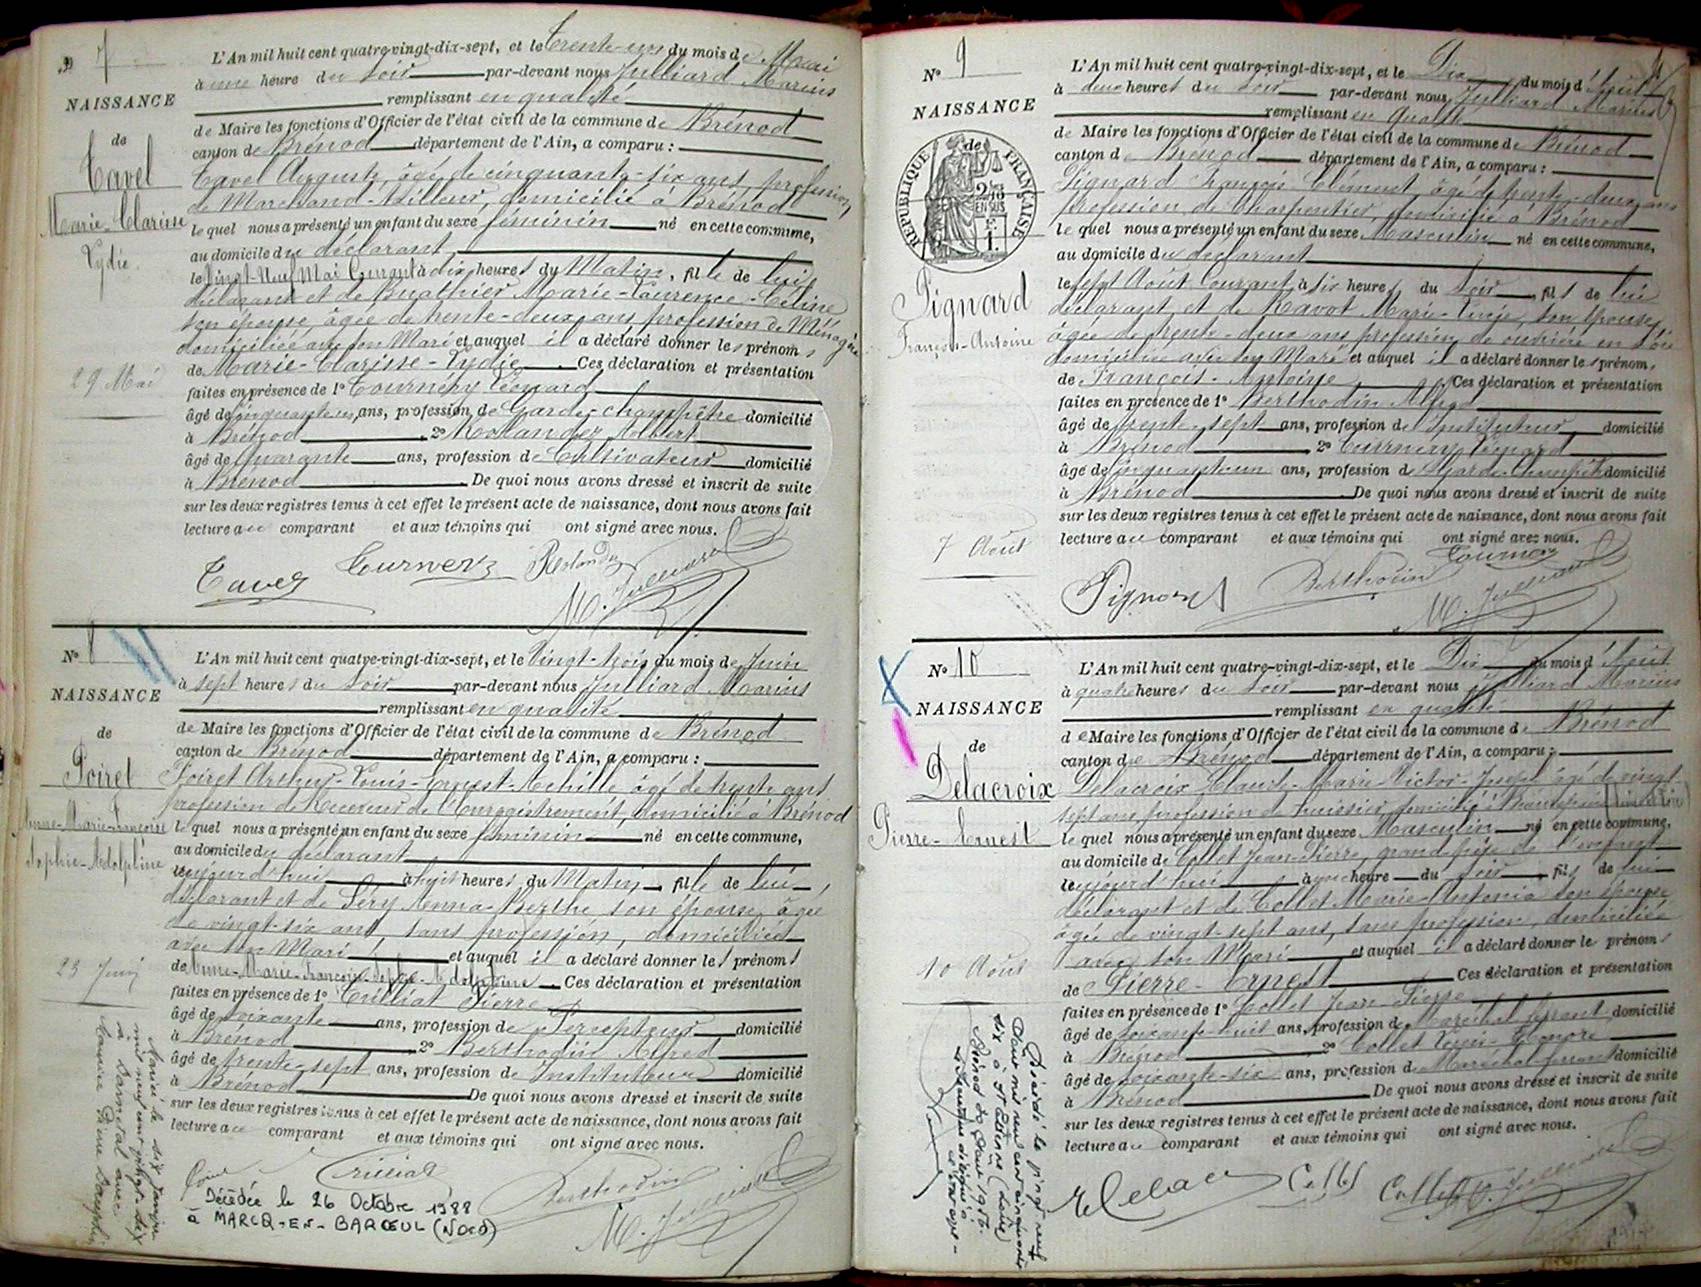 7
NAISSANCE
de
Tavel
Marie-Clarisse
Lydie
29 Mai
L'An mil huit cent quatre-vingt-dix-sept, et le trente-un du mois de Mai
à une heure du soir par-devant nous Julliard Marius
remplissant en qualité
de Maire les fonctions d'Officier de l'état civil de la commune de Brénod
canton de Brénod département de l'Ain, a comparu :
Tavel Auguste, âgé de cinquante-six ans, profession
de Marchand-tailleur, domicilié à Brénod
le quel nous a présenté un enfant du sexe féminin né en cette commune,
au domicile du déclarant
le Vingt-Neuf Mai Courant à dix heures du Matin, fille de lui
déclarant et de Buathier Marie-Laurence-Céline
son épouse, âgée de trente-deux ans profession de Ménagère
domiciliée avec son Mari et auquel il a déclaré donner les prénoms
de Marie-Clarisse-Lydie Ces déclaration et présentation
faites en présence de 1° Tournery Léonard
âgé de cinquante un ans, profession de Garde-champêtre domicilié
à Brénod 2° Rolandez Albert
âgé de quarante ans, profession de Cultivateur domicilié
à Brénod De quoi nous avons dressé et inscrit de suite
sur les deux registres tenus à cet effet le présent acte de naissance, dont nous avons fait
lecture au comparant et aux témoins qui ont signé avec nous.
Tavel Turnery Rolandez
M. Julliard
N° 8
NAISSANCE
de
Poiret
Anne-Marie-Françoise
Sophie-Adolphine
23 Juin
Mariée le six Janvier
mil neuf cent vingt-six
à Darnétal avec
L'An mil huit cent quatre-vingt-dix-sept, et le Vingt-trois du mois de Juin
à sept heures du soir par-devant nous Julliard Marius
remplissant en qualité
de Maire les fonctions d'Officier de l'état civil de la commune de Brénod
canton de Brénod département de l'Ain, a comparu :
Poiret Arthur-Louis-Ernest-Achille âgé de trente ans
profession de Receveur de l'Enregistrement, domicilié à Brénod
le quel nous a présenté un enfant du sexe féminin né en cette commune,
au domicile du déclarant
aujourd'hui à huit heures du Matin, fille de lui,
déclarant et de Léry Anna-Berthe, son épouse, âgée
de vingt-six ans, sans profession, domiciliée
avec son Mari et auquel il a déclaré donner les prénoms
de Anne-Marie-Françoise-Sophie-Adolphine Ces déclaration et présentation
faites en présence de 1° Cuilliat Pierre
âgé de soixante ans, profession de Percepteur domicilié
à Brénod 2° Berthodin Alfred
âgé de trente-sept ans, profession de Instituteur domicilié
à Brénod De quoi nous avons dressé et inscrit de suite
sur les deux registres tenus à cet effet le présent acte de naissance, dont nous avons fait
lecture au comparant et aux témoins qui ont signé avec nous.
Cuilliat Berthodin
M. Julliard
Décédée le 26 Octobre 1988
à MARCQ-EN-BARŒUL (Nord)
N° 9
NAISSANCE
de
RÉPUBLIQUE FRANÇAISE
2/10 EN SUS
Pignard
François-Antoine
7 Août
L'An mil huit cent quatre-vingt-dix-sept, et le Dix du mois d'Août
à deux heures du soir par-devant nous Julliard Marius
remplissant en qualité
de Maire les fonctions d'Officier de l'état civil de la commune de Brénod
canton de Brénod département de l'Ain, a comparu :
Pignard François-Clément, âgé de trente-deux ans
profession de Charpentier, domicilié à Brénod
le quel nous a présenté un enfant du sexe Masculin né en cette commune,
au domicile du déclarant
le sept Août Courant, à six heures du soir, fils de lui
déclarant et de Ravot Marie-Lucie, son épouse,
âgée de trente-deux ans profession de ouvrière en soie
domiciliée avec son Mari et auquel il a déclaré donner les prénoms
de François-Antoine Ces déclaration et présentation
faites en présence de 1° Berthodin Alfred
âgé de trente-sept ans, profession de Instituteur domicilié
à Brénod 2° Turnery Léonard
âgé de cinquante un ans, profession de Garde-Champêtre domicilié
à Brénod De quoi nous avons dressé et inscrit de suite
sur les deux registres tenus à cet effet le présent acte de naissance, dont nous avons fait
lecture au comparant et aux témoins qui ont signé avec nous.
Pignard Berthodin Tournery
M. Julliard
N° 10
NAISSANCE
de
Delacroix
Pierre-Ernest
10 Août
Décédé le vingt neuf
Août mil neuf cent cinquante
six à St Etienne (Loire)
L'An mil huit cent quatre-vingt-dix-sept, et le Dix du mois d'Août
à quatre heures du soir par-devant nous Julliard Marius
remplissant en qualité
de Maire les fonctions d'Officier de l'état civil de la commune de Brénod
canton de Brénod département de l'Ain, a comparu :
Delacroix Claude-Marie-Victor-Joseph âgé de vingt-
sept ans profession de huissier, domicilié à
le quel nous a présenté un enfant du sexe Masculin né en cette commune,
au domicile de Collet Jean-Pierre, grand-père de l'enfant
aujourd'hui à une heure du soir, fils de lui
déclarant et de Collet Marie-Antonia son épouse
âgée de vingt-sept ans, sans profession, domiciliée
avec son Mari et auquel il a déclaré donner les prénoms
de Pierre-Ernest Ces déclaration et présentation
faites en présence de 1° Collet Jean-Pierre
âgé de soixante-huit ans, profession de Maréchal ferrant domicilié
à Brénod 2° Collet
âgé de soixante-six ans, profession de Maréchal-ferrant domicilié
à Brénod De quoi nous avons dressé et inscrit de suite
sur les deux registres tenus à cet effet le présent acte de naissance, dont nous avons fait
lecture au comparant et aux témoins qui ont signé avec nous.
Delacroix Collet Collet M. Julliard